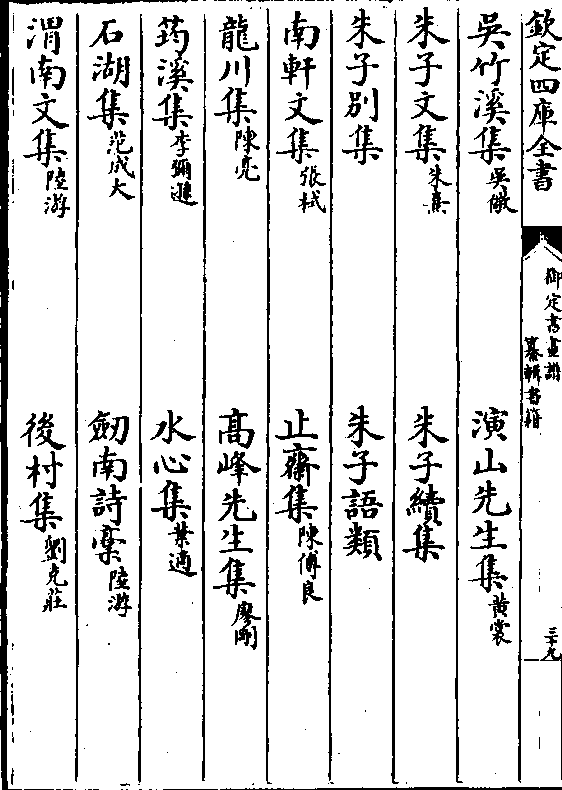 欽定四庫全書
御定書畫譜
纂輯書籍
三十九
吳竹溪集吳儆
演山先生集黃裳
朱子文集朱熹
朱子續集
朱子別集
朱子語類
南軒文集張栻
止齋集陳傅良
龍川集陳亮
高峰先生集廖剛
筠溪集李彌遜
水心集葉適
石湖集范成大
劒南詩稾陸游
渭南文集陸游
後村集劉克莊